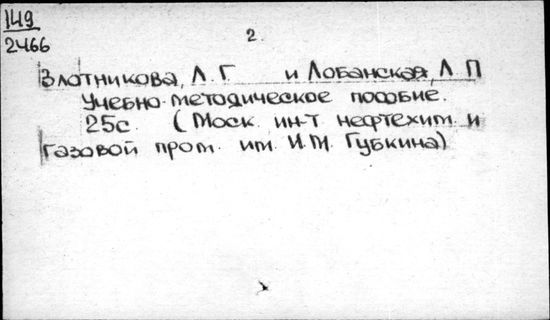 149
2466
2.
Злотникова, Л. Г. и Лобанская, Л П
Учебно-методическое пособие.
25с. (Моск. ин-т нефтехим. и
газовой пром. им. И.М. Губкина)